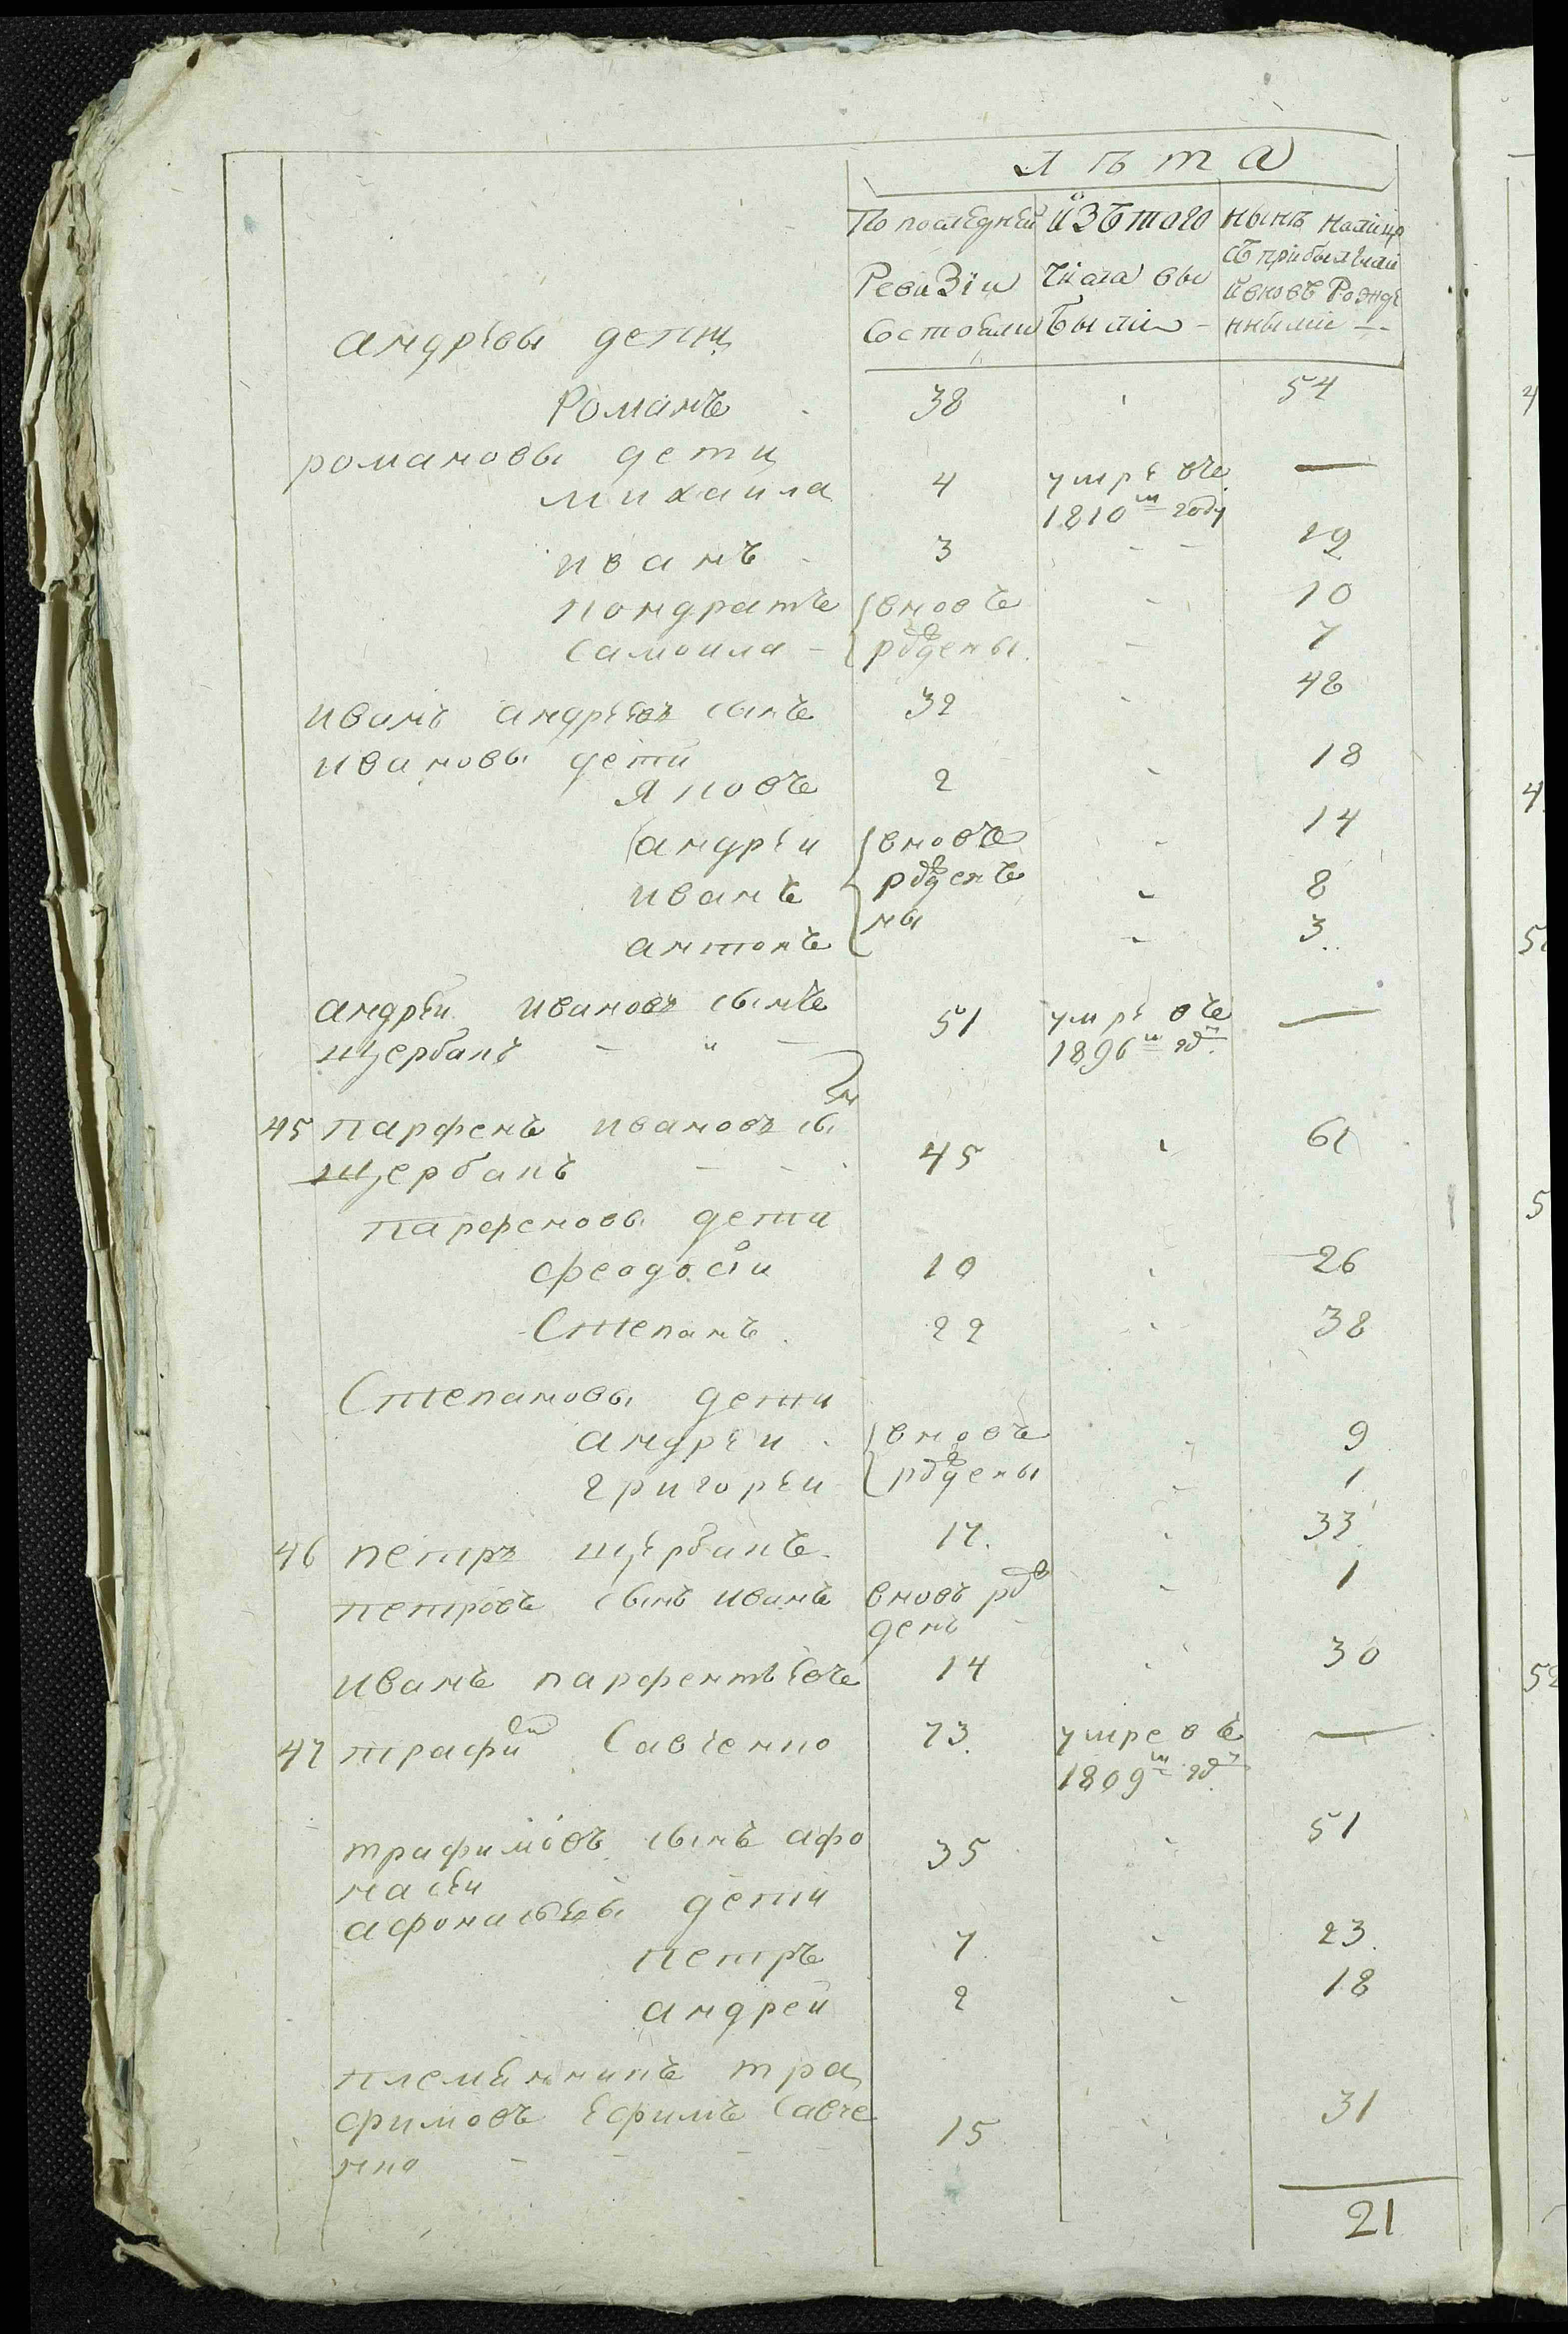 лѣта
По последней изъ того нынѣ налицо
съ прибылыми
Ревизіи числа вы и вновь рожде
состояли были - нными —
андрѣевы дети
Романъ 38 54
романовы дети
михаила 4 умре въ —
1810м году
иванъ 3 19
кондратъ вновъ 10
самоила рождены 7
иванъ андрѣевъ сынъ 32 48
ивановы дети
яковъ 2 18
андрѣи вновъ 14
иванъ рожденъ 8
антонъ ны 3
андрѣи ивановъ сынъ 51 умрѣ въ —
щербакъ 1806м год
45 парфенъ ивановъ сын
щербакъ 45 61
парфеновы дети
феодосіи 10 26
Степанъ 22 38
Степановы дети
андрѣи вновъ 9
григорѣи рождены 1
46 петръ щербакъ 17 33
петровъ сынъ иванъ вновъ рож 1
денъ
иванъ парфентьевъ 14 30
47 трафим Савченко 73 умре въ —
1809м год
трафимовъ сынъ афо 35 51
насѣи
афонасьевы дети
петръ 7 23
андреи 2 18
племенникъ тра
фимовъ ефимъ Савче 15 31
нко
21